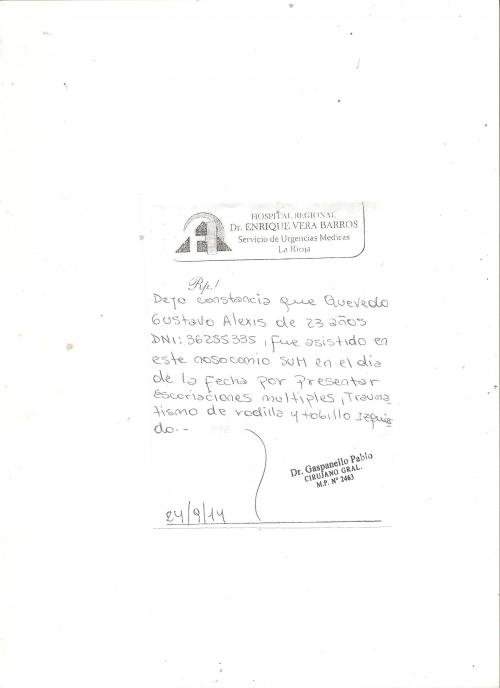 HOSPITAL REGIONAL
Dr. ENRIQUE VERA BARROS
Servicio de Urgencias Medicas
La Rioja
Rp!
Dejo constancia que Quevedo
Gustavo Alexis de 23 años
DNI: 36255335, fue asistido en
este nosocomio SUM en el día
de la fecha por presentar
escoriaciones multiples, Trauma
tismo de rodilla y tobillo izquie
do.-
Dr. Gaspanello Pablo
CIRUJANO GRAL.
M.P. N° 2463
24/9/14